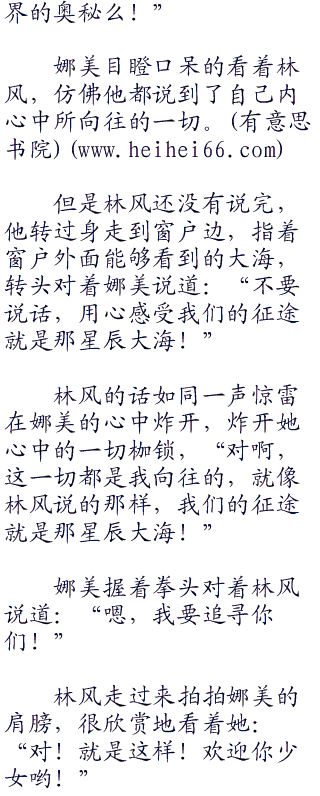 界的奥秘么！”
娜美目瞪口呆的看着林
风，仿佛他都说到了自己内
心中所向往的一切。(有意思
书院)(www.heihei66.com)
但是林风还没有说完，
他转过身走到窗户边，指着
窗户外面能够看到的大海，
转头对着娜美说道：“不要
说话，用心感受我们的征途
就是那星辰大海！”
林风的话如同一声惊雷
在娜美的心中炸开，炸开她
心中的一切枷锁，“对啊，
这一切都是我向往的，就像
林风说的那样，我们的征途
就是那星辰大海！”
娜美握着拳头对着林风
说道：“嗯，我要追寻你
们！”
林风走过来拍拍娜美的
肩膀，很欣赏地看着她：
“对！就是这样！欢迎你少
女哟！”